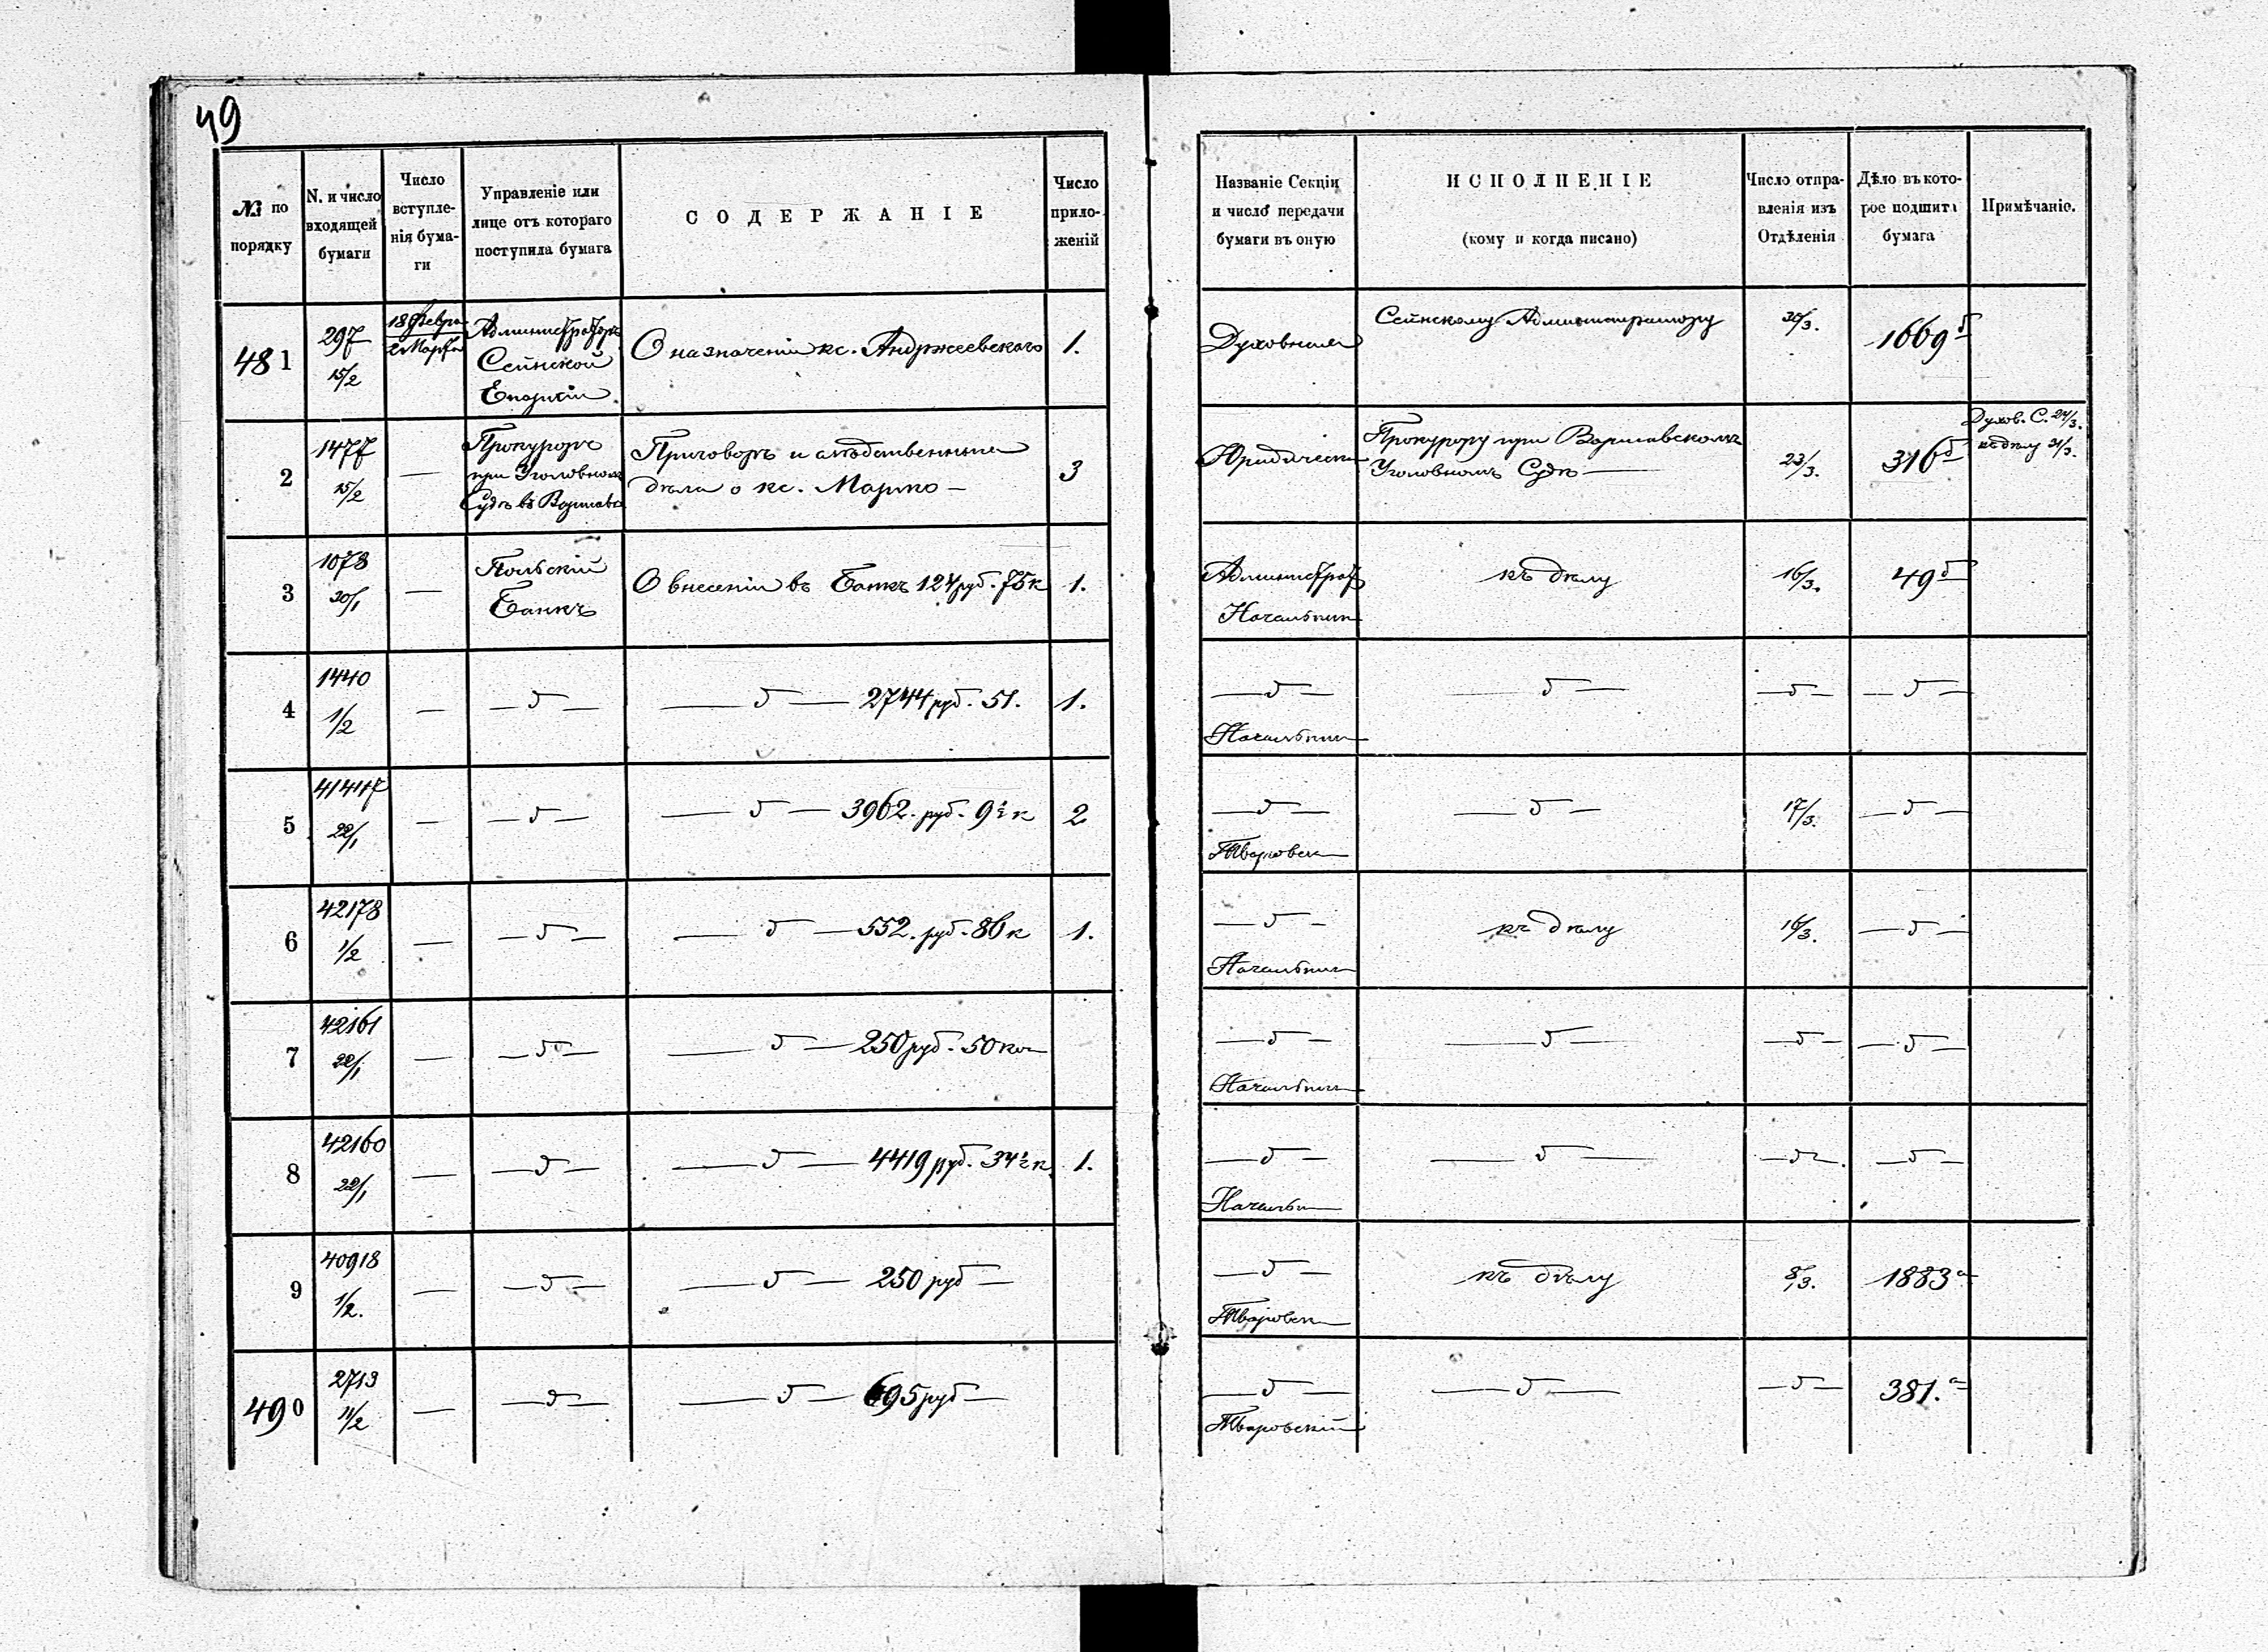 49
№ по порядку
N. и число входящей бумаги
Число вступленія бумаги
Управленіе или лице отъ котораго поступила бумага
СОДЕРЖАНІЕ
Число приложеній
Названіе Секціи и число передачи бумаги въ оную
ИСПОЛНЕНІЕ
(кому и когда писано)
Число отправленія изъ Отдѣленія
Дѣло въ которое подшита бумага
Примѣчаніе.
481 297 15/2 18 Февра 2 Марта Администраторъ Сейнской Епархіи О назначеніи кс. Андржеевскаго 1. Духовная Сейнскому Администратору 30/3. 1669 б
2 1477 15/2 — Прокуроръ при Уголовномъ Судѣ въ Варшавѣ Приговоръ и слѣдственныя дѣла о кс. Марко — 3 Юридическ Прокурору при Варшавскомъ Уголовномъ Судѣ — 23/3. 316 б Духов. С. 24/3. къ дѣлу 31/3.
3 1078 30/1 — Польскій Банкъ О внесеніи въ Банкъ 124 руб. 75 к 1. Администрат къ дѣлу 16/3. 49 б
4 1440 1/2 — — б — — б — 2744 руб. 51. 1. — б — — б — — б — — б —
5 41417 22/1 — — б — — б — 3962. руб. 9½ к 2 — б — Тваровск — б — 17/3. — б —
6 42178 1/2 — — б — — б — 552. руб. 86 к 1. — б — къ дѣлу 16/3. — б —
7 42161 22/1 — — б — — б — 250 руб. 50 коп — б — — б — — б — — б —
8 42160 22/1 — — б — — б — 4419 руб. 34½ к 1. — б — — б — — б — — б —
9 40918 1/2. — — б — — б — 250 руб — — б — Тваровск къ дѣлу 8/3. 1883 а
490 2713 11/2 — — б — — б — 695 руб — — б — Тваровскій — б — — б — 381. а